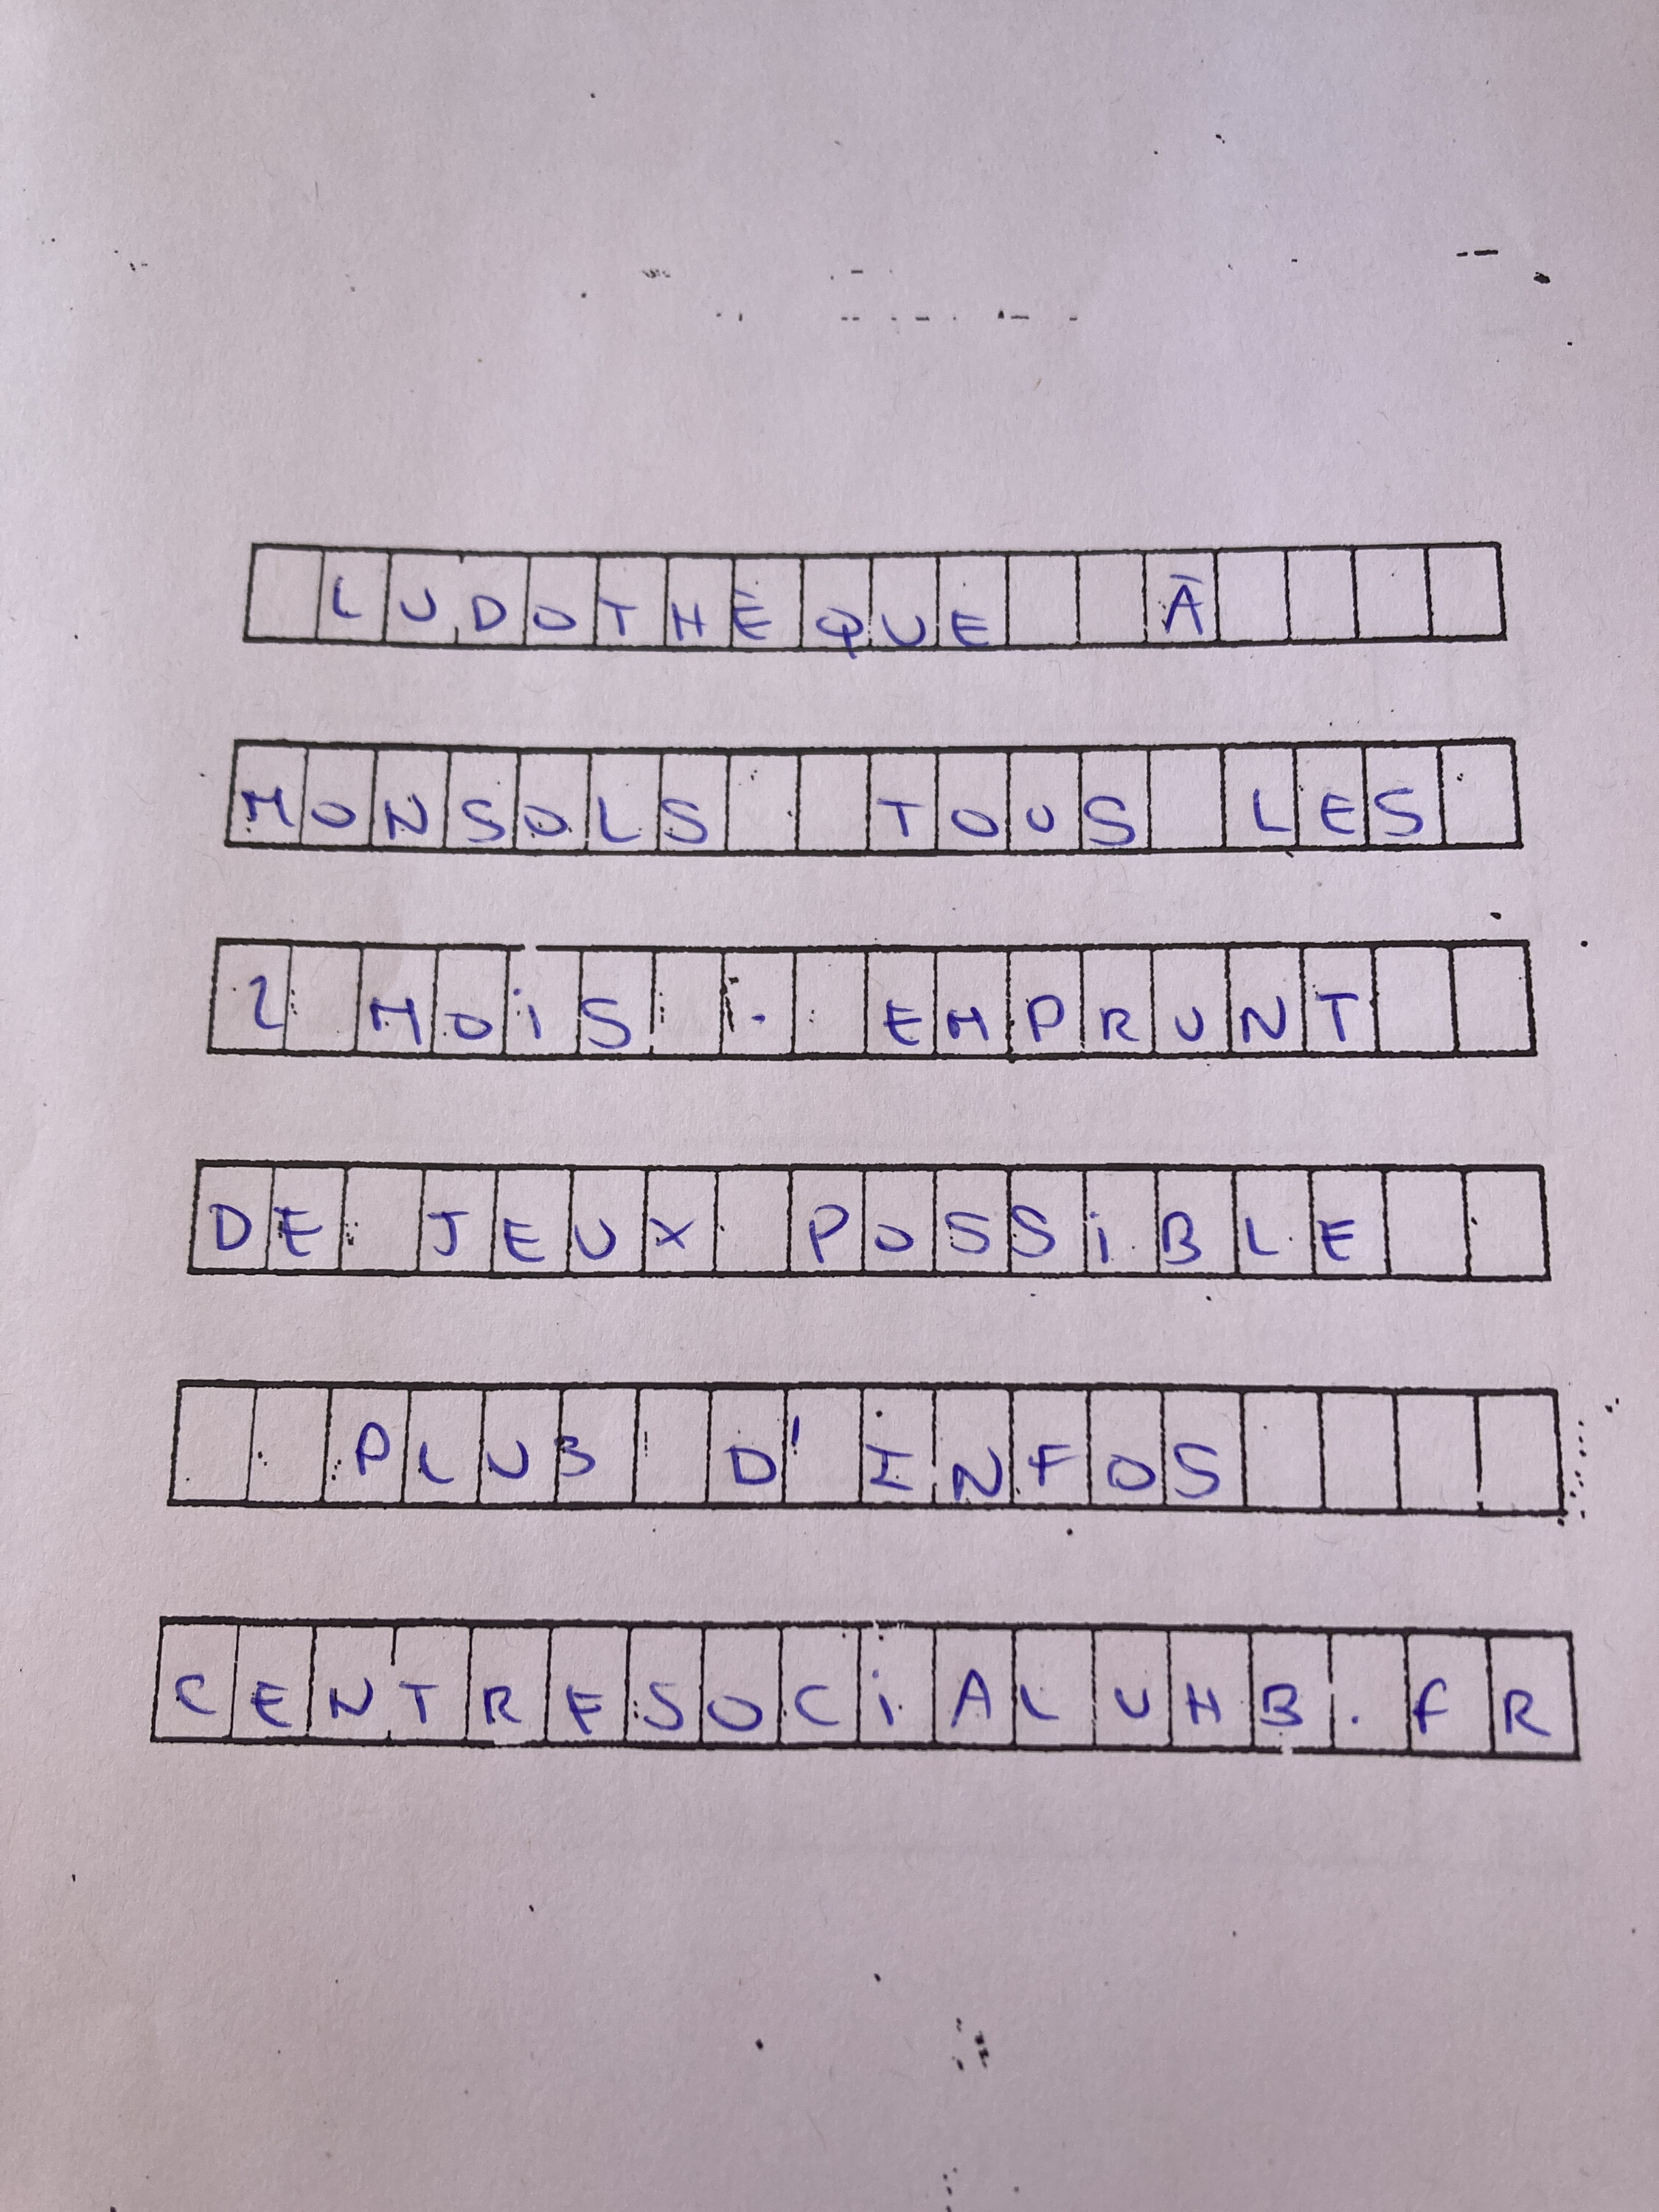 LUDOTHÈQUE À
MONSOLS TOUS LES
2 MOIS. EMPRUNT
DE JEUX POSSIBLE
PLUS D'INFOS
CENTRESOCIALUHB.FR